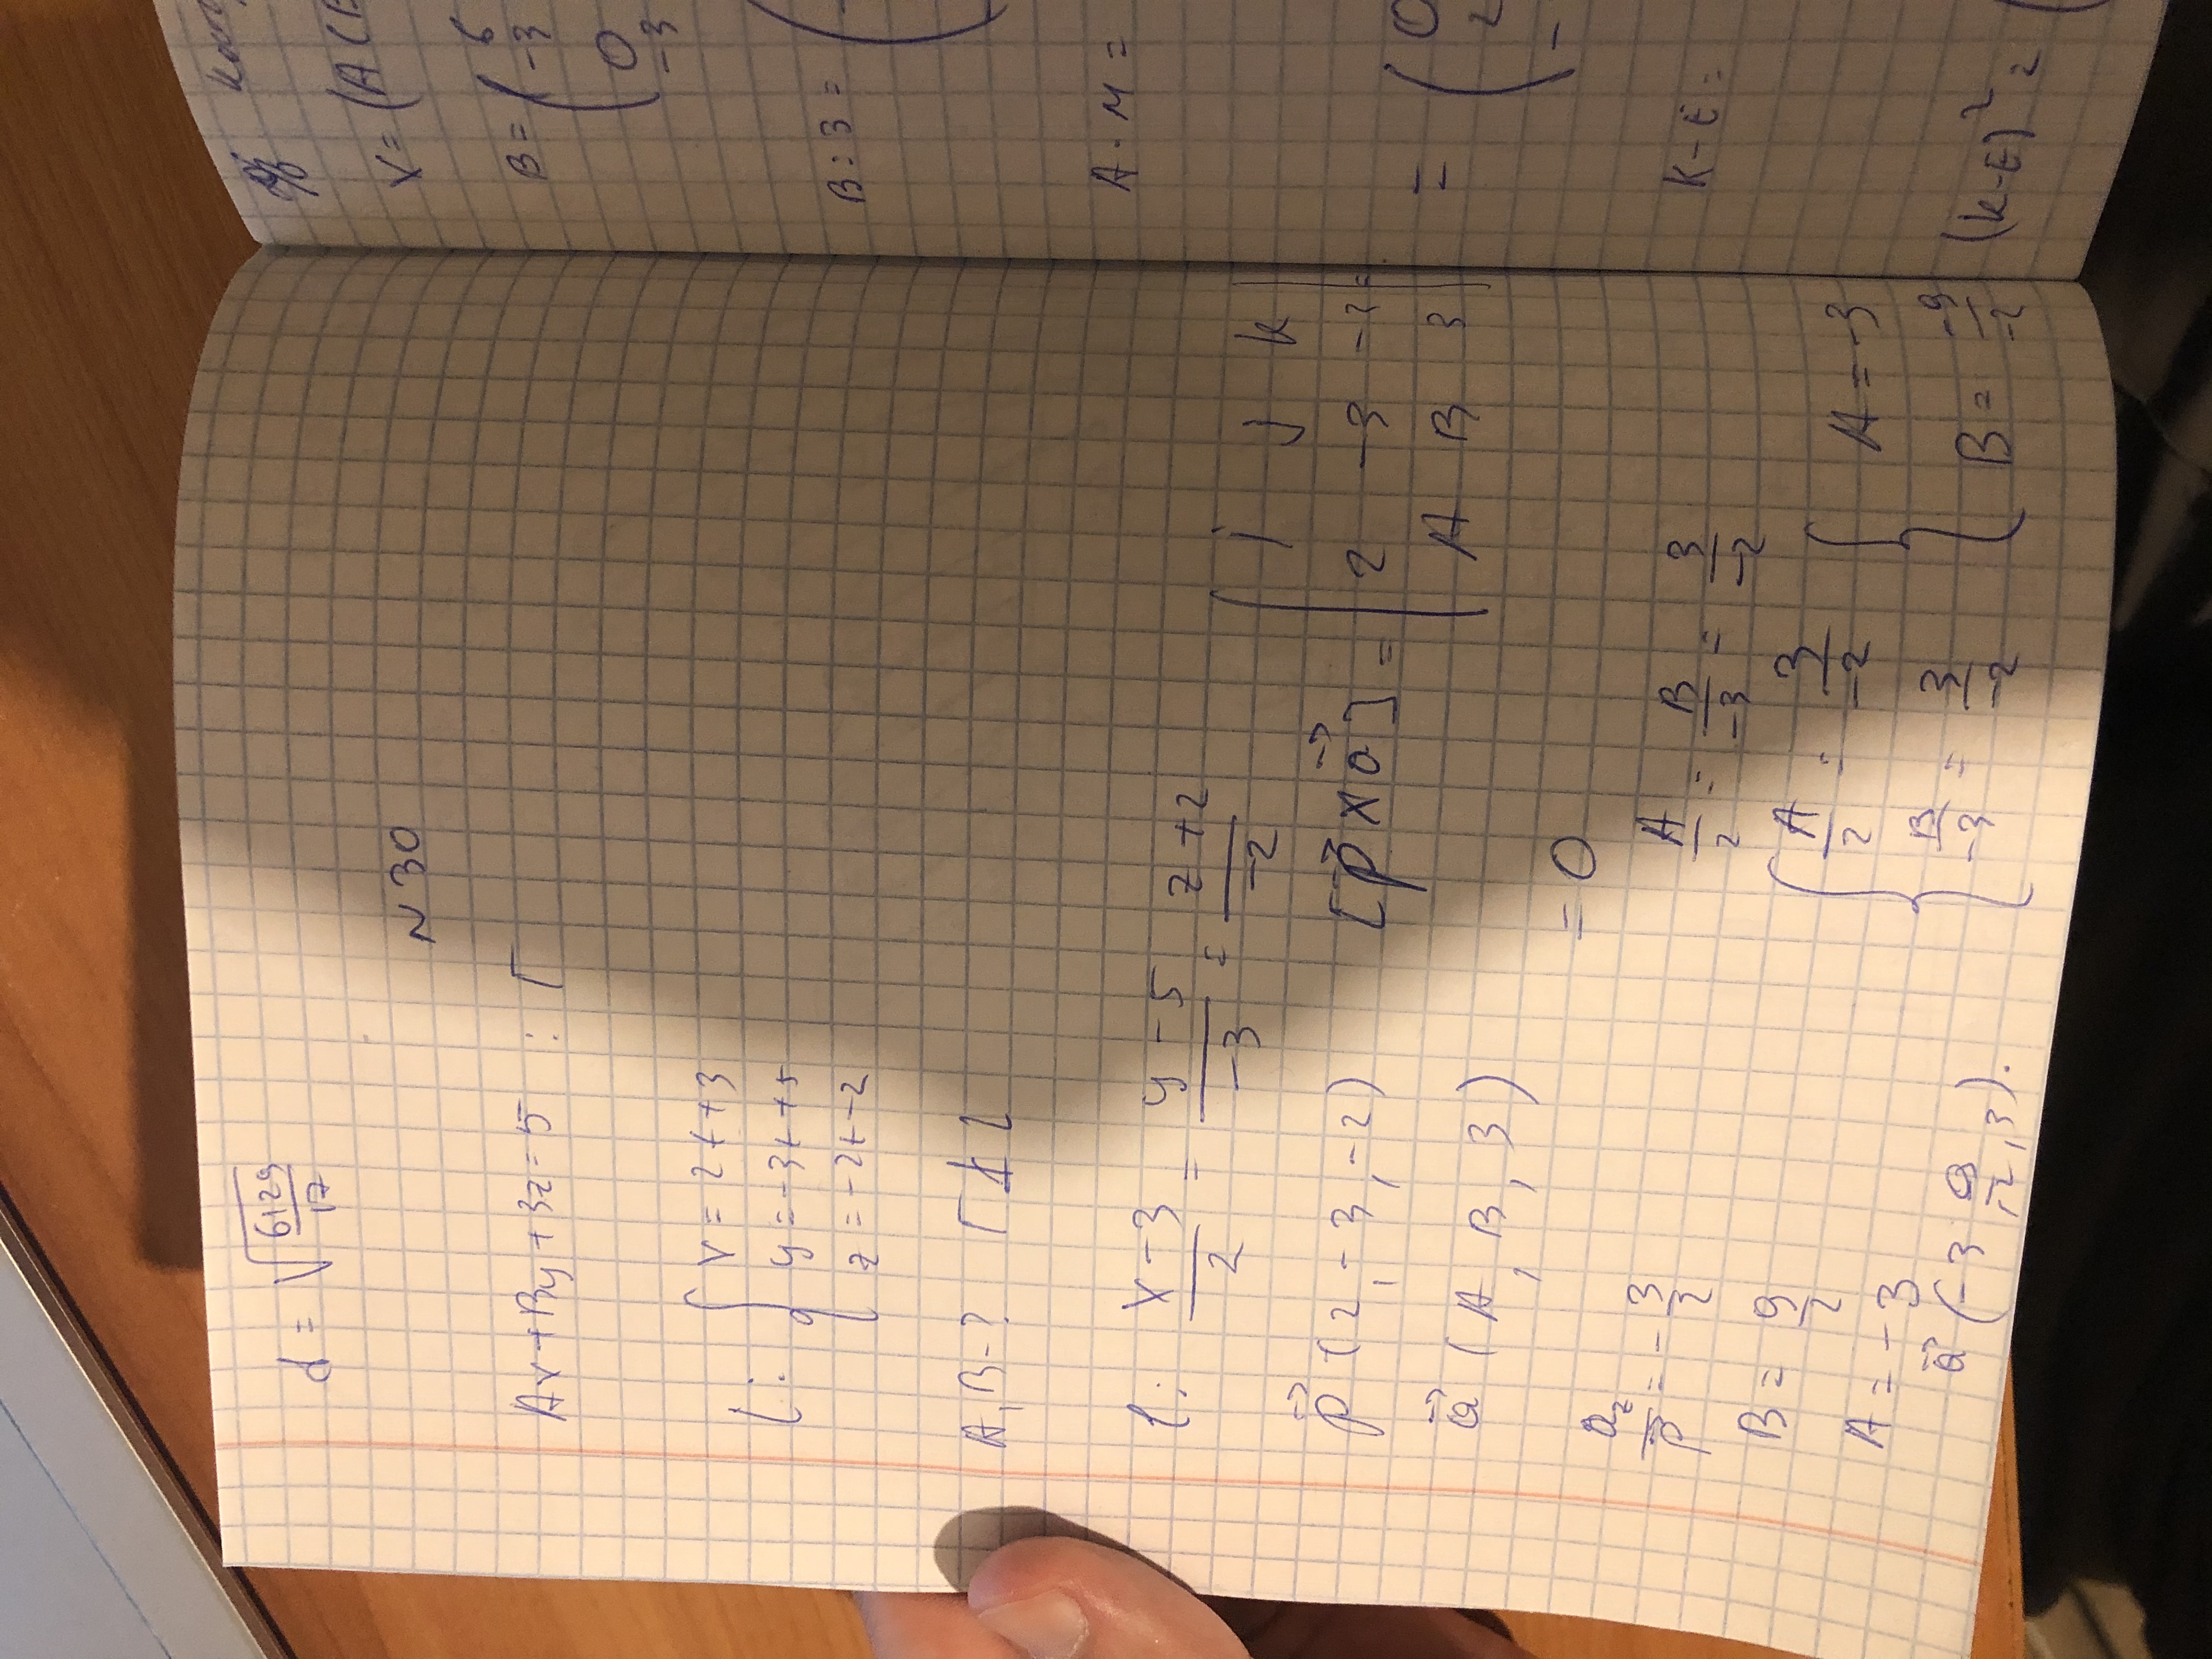 d = √(6129/17)
N 30
Ax + By + 3z = 5 : Γ
L: { x = 2t + 3
y = -3t + 5
z = -2t - 2
A, B - ? Γ ⊥ L
l: (x - 3)/2 = (y - 5)/(-3) = (z + 2)/(-2)
p⃗ (2, -3, -2) [p⃗ × a⃗] = | i j k
a⃗ (A, B, 3) 2 -3 -2 =
A B 3 |
= 0
a₂/p = -3/2 A/2 = B/-3 = 3/-2
B = 9/2 { A/2 = 3/-2 { A = -3
A = -3 B/-3 = 3/-2 B = -9/-2
a⃗ (-3, 9/2, 3).
X = (A (B
B = ( 6
-3
0
-3
B : 3 = (
A · M =
= ( 0
2
-
K - E =
(K - E)² = (